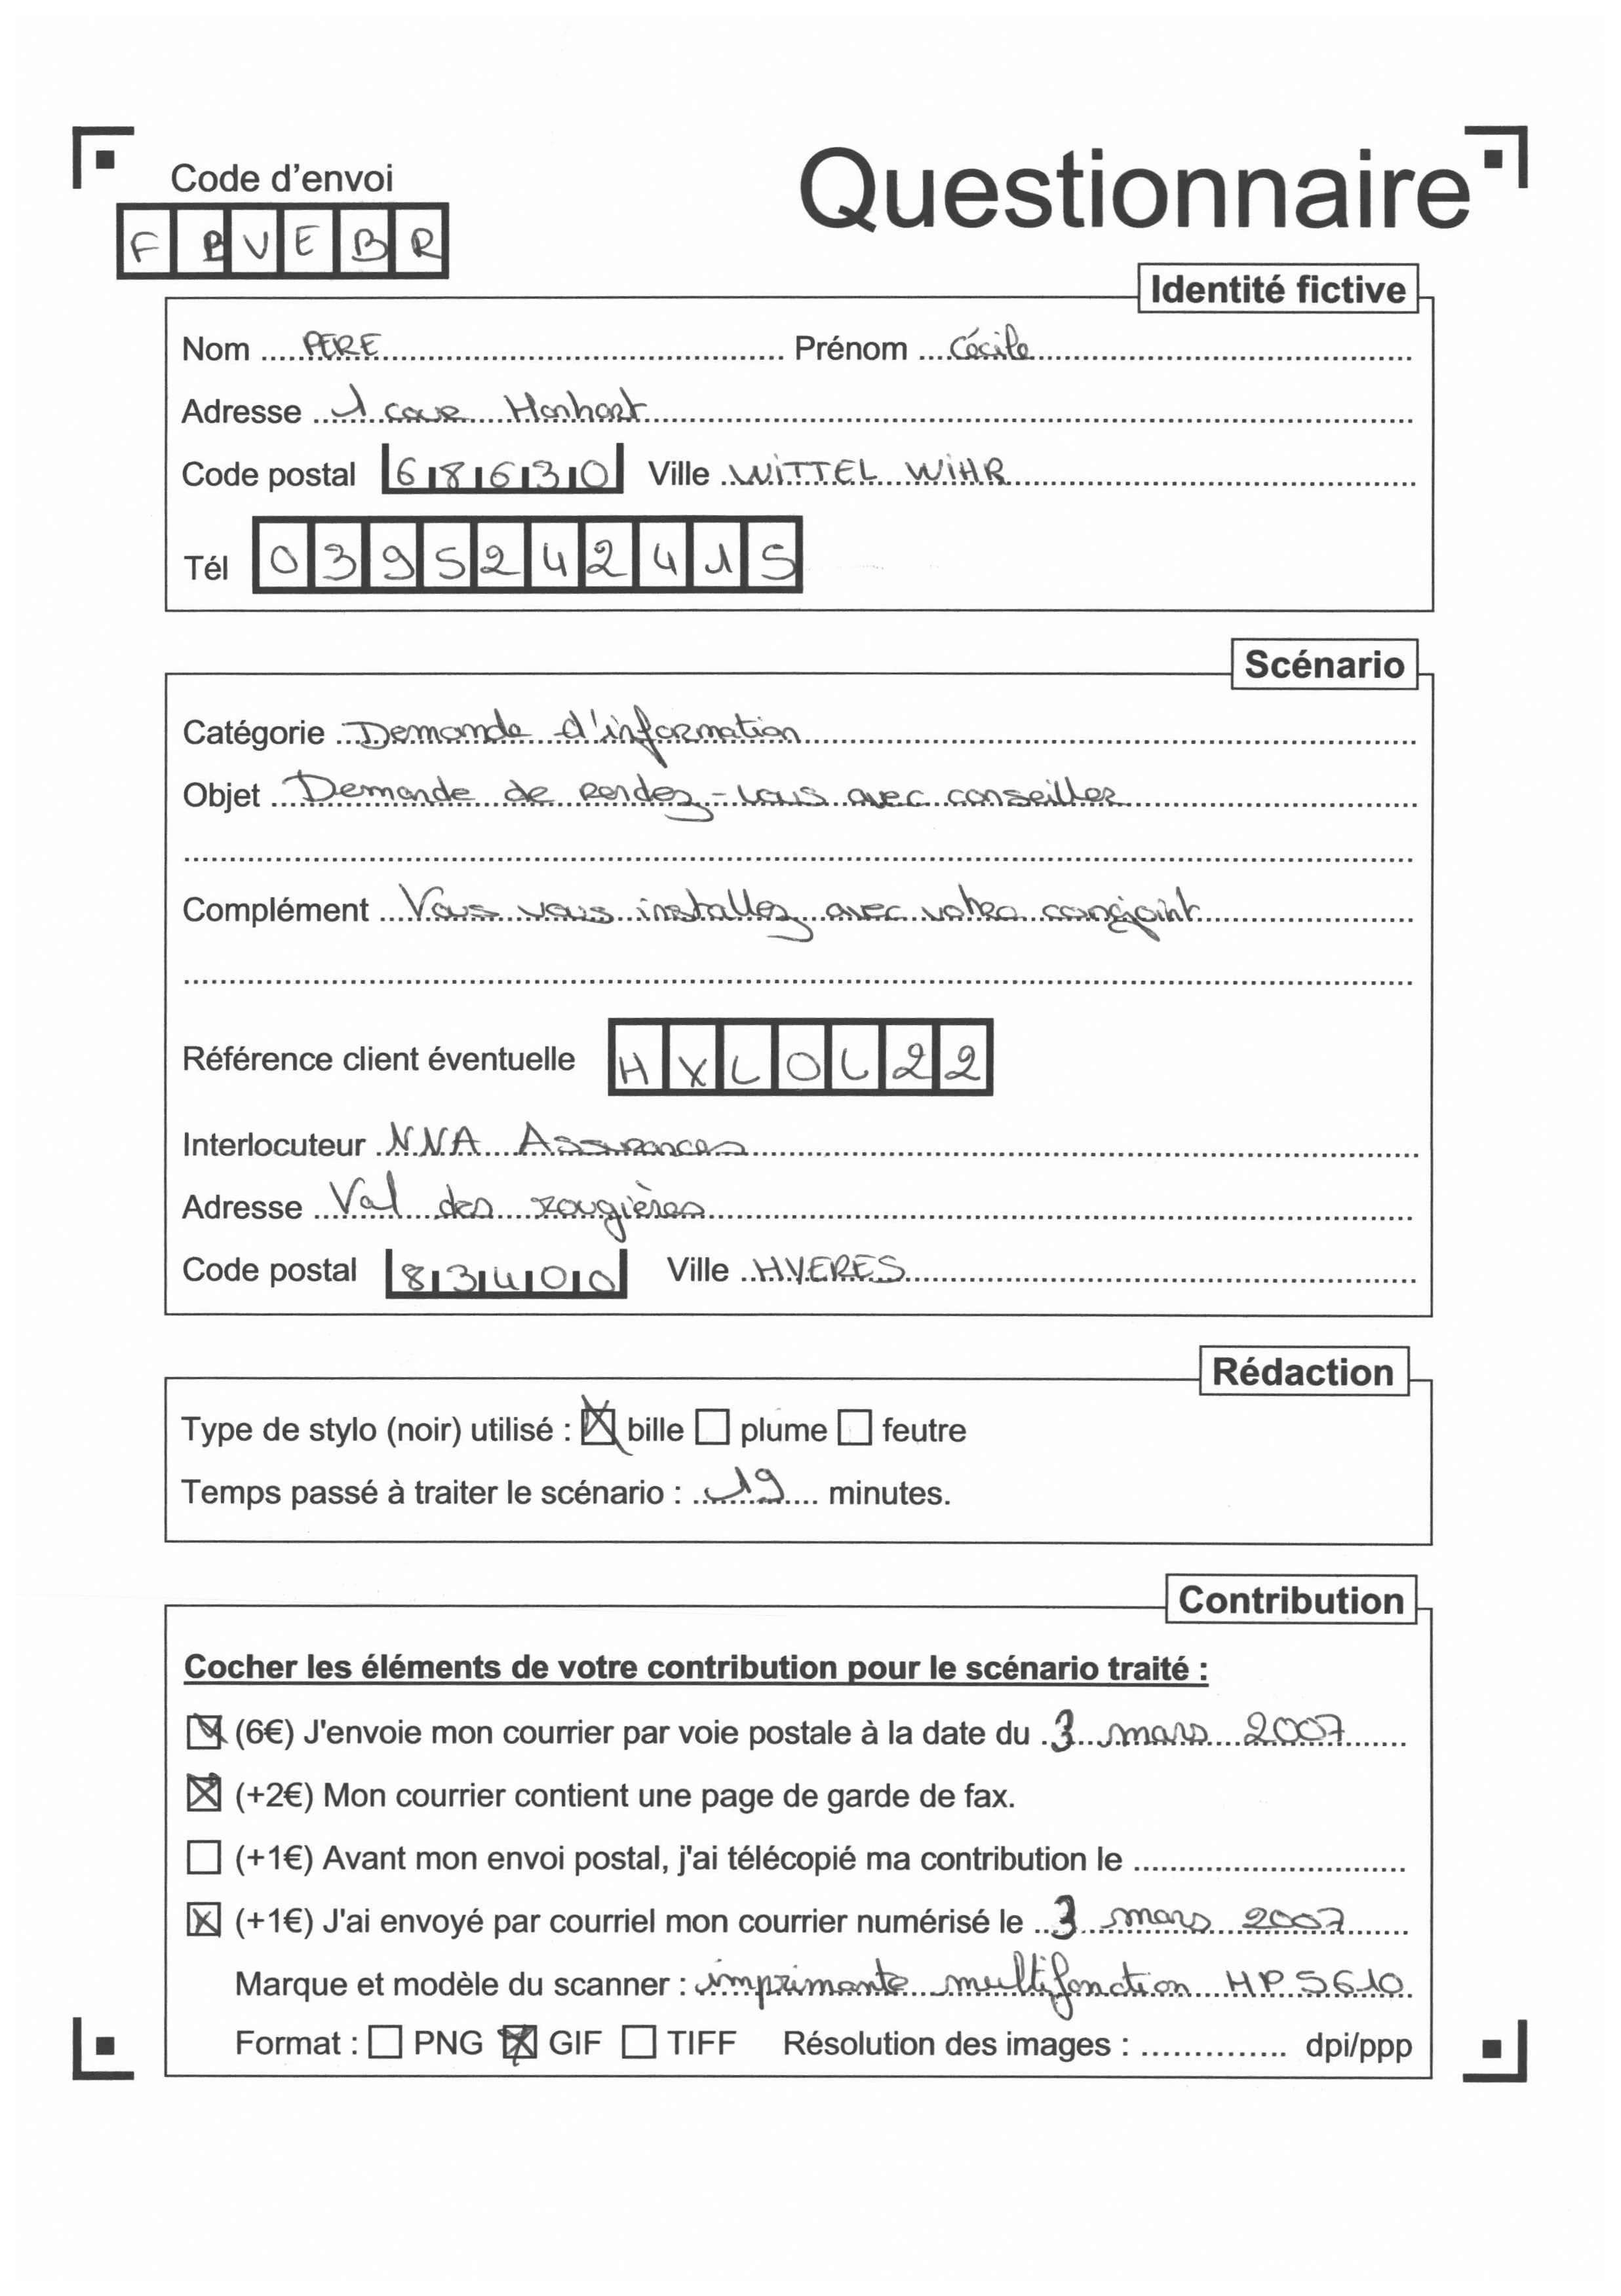 Questionnaire
Code d'envoi
F B V E B R
Identité fictive
Nom PERE Prénom Cécile
Adresse 1 cour Hanhart
Code postal 68630 Ville WITTEL WIHR
Tél 0395242415
Scénario
Catégorie Demande d'information
Objet Demande de rendez-vous avec conseiller
Complément Vous vous installez avec votre conjoint
Référence client éventuelle HXLOL22
Interlocuteur NNA Assurances
Adresse Val des rougières
Code postal 83400 Ville HYERES
Rédaction
Type de stylo (noir) utilisé : bille plume feutre
Temps passé à traiter le scénario : 19 minutes.
Contribution
Cocher les éléments de votre contribution pour le scénario traité :
(6€) J'envoie mon courrier par voie postale à la date du 3 mars 2007
(+2€) Mon courrier contient une page de garde de fax.
(+1€) Avant mon envoi postal, j'ai télécopié ma contribution le
(+1€) J'ai envoyé par courriel mon courrier numérisé le 3 mars 2007
Marque et modèle du scanner : imprimante multifonction HP 5610
Format : PNG GIF TIFF Résolution des images : dpi/ppp